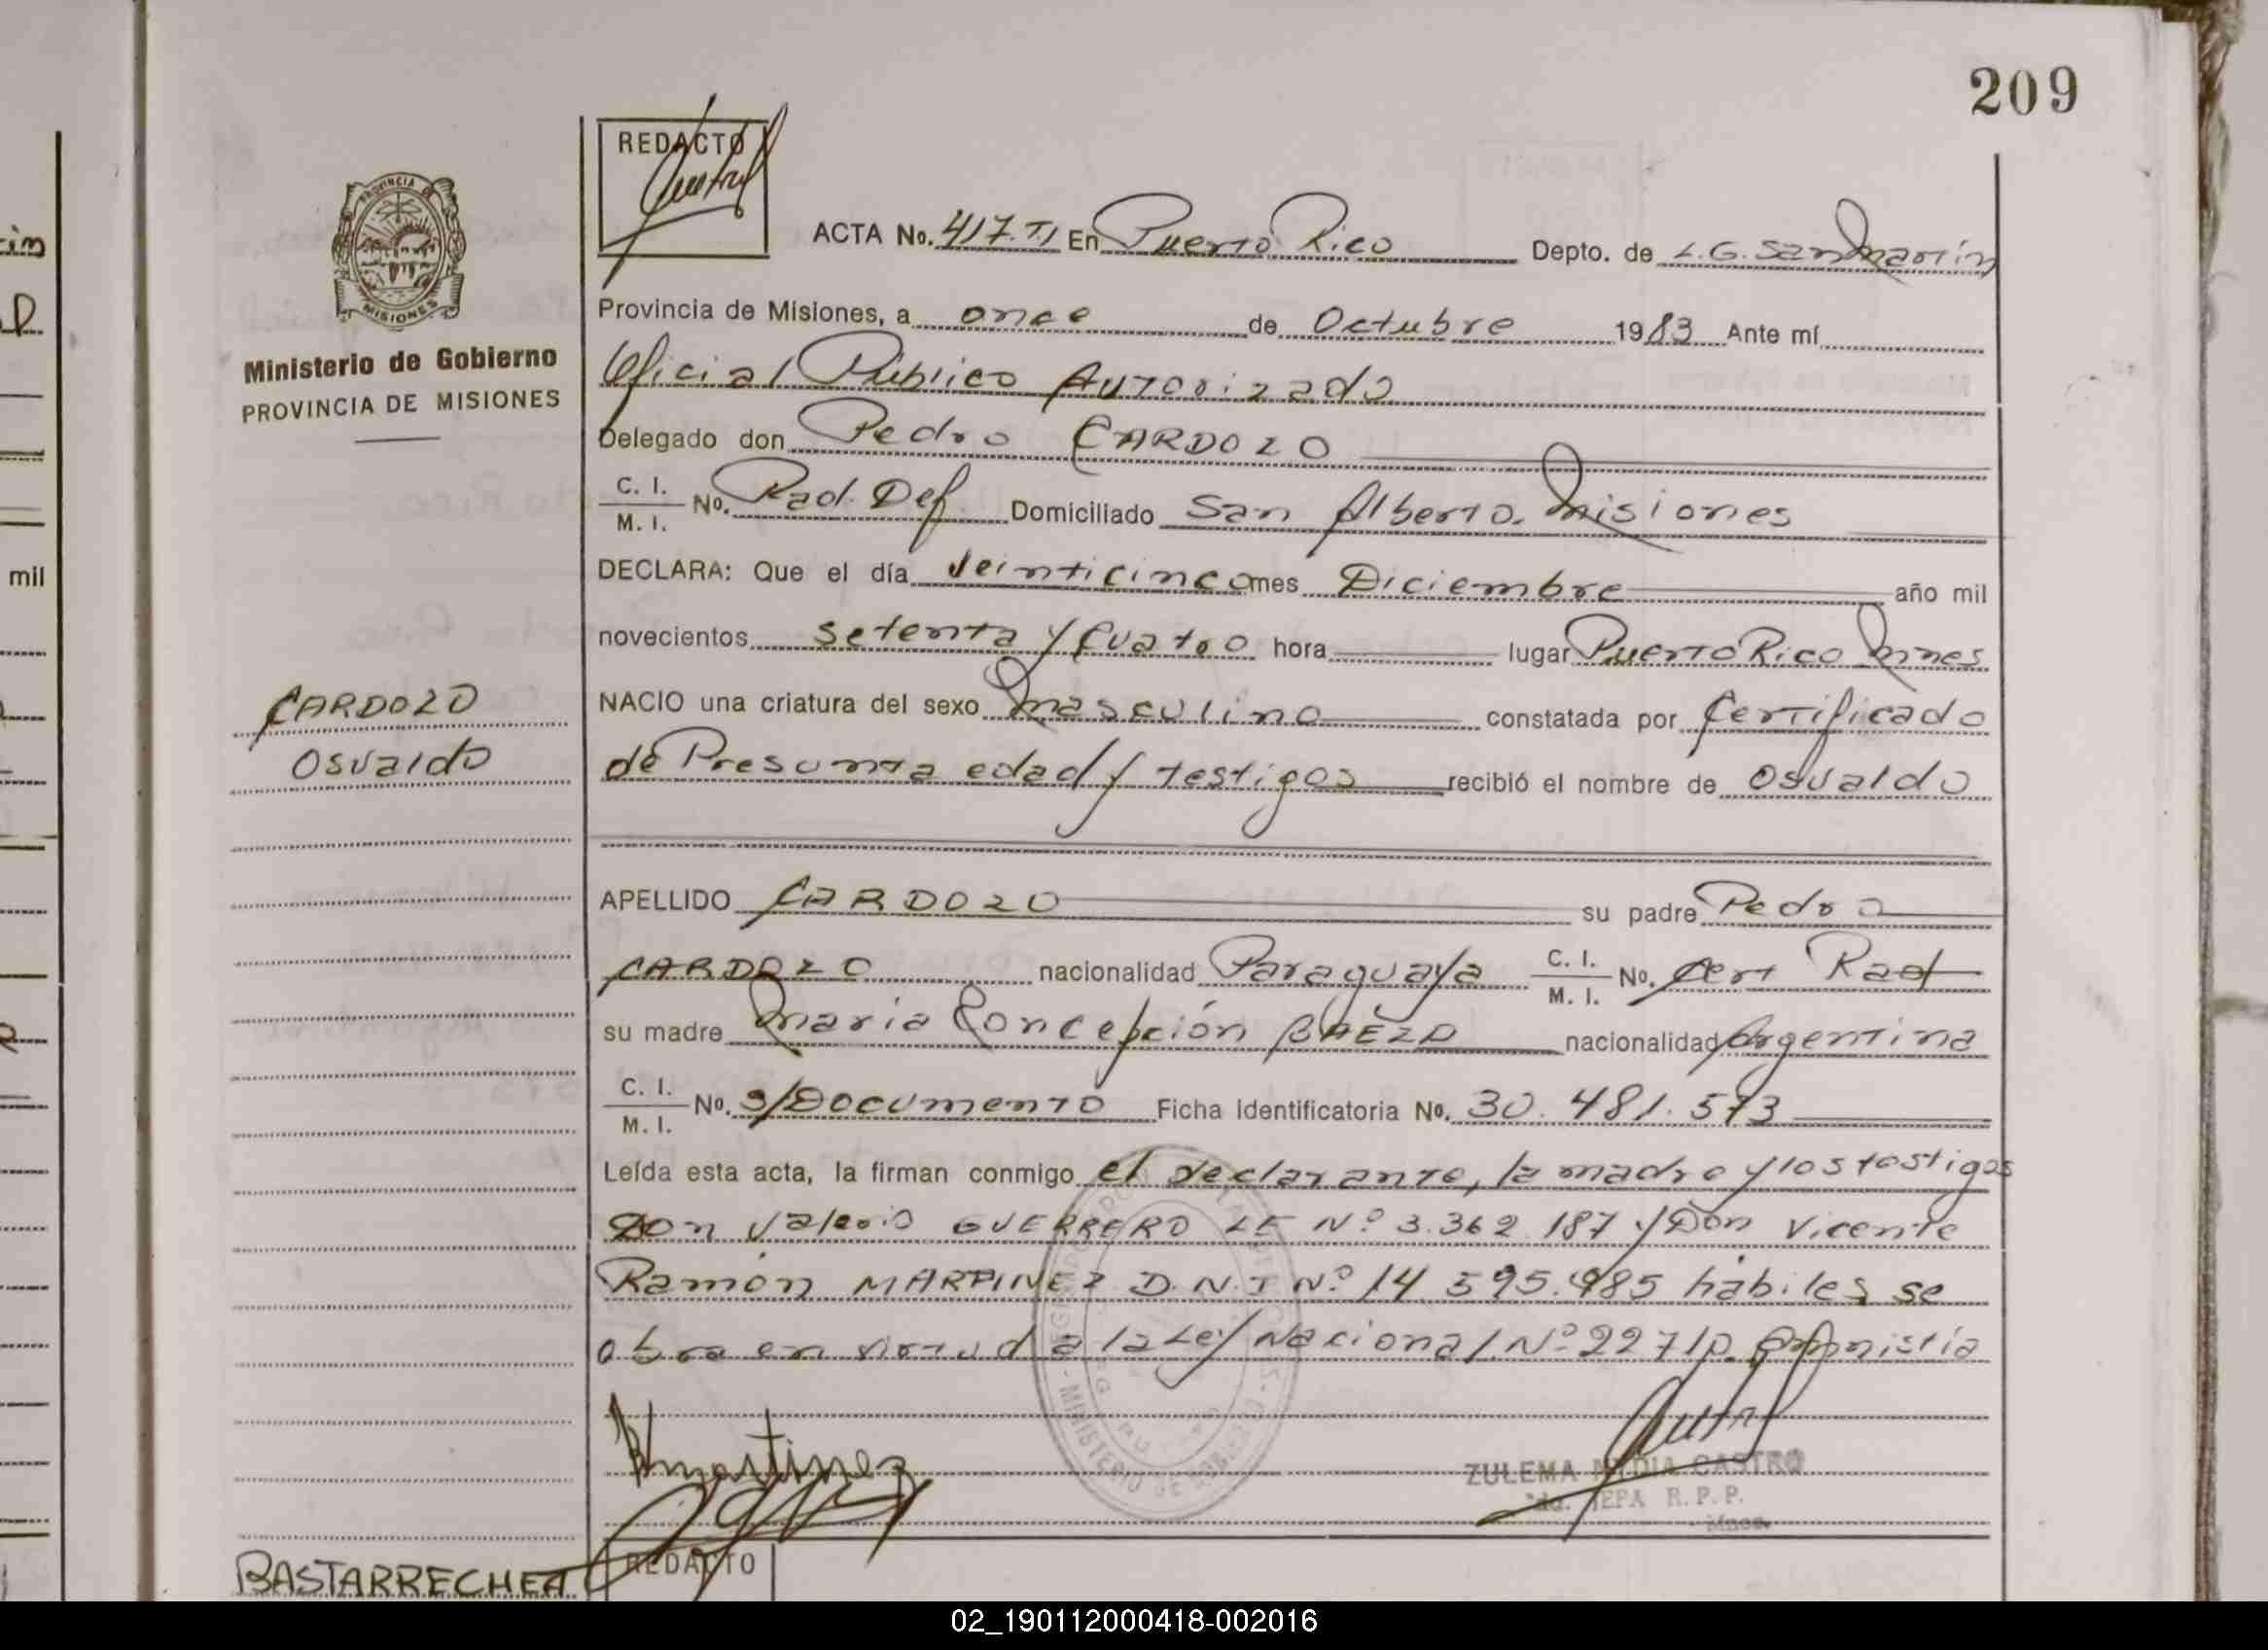 209
REDACTO
PROVINCIA DE
MISIONES
Ministerio de Gobierno
PROVINCIA DE MISIONES
ACTA No. 417. T.I En Puerto Rico Depto. de L.G. San Martín
Provincia de Misiones, a once de Octubre 1983 Ante mí
Oficial Público Autorizado
Delegado don Pedro CARDOZO
C. I.
M. I. No. Rad. Def. Domiciliado San Alberto. Misiones
DECLARA: Que el día veinticinco mes Diciembre año mil
novecientos setenta y Cuatro hora lugar Puerto Rico Mnes
CARDOZO
Osvaldo
NACIO una criatura del sexo masculino constatada por Certificado
de Presunta edad y testigos recibió el nombre de Osvaldo
APELLIDO CARDOZO su padre Pedro
CARDOZO nacionalidad Paraguaya C. I. M. I. No. Cert Rad
su madre Maria Concepción BAEZ nacionalidad Argentina
C. I.
M. I. No. s/Documento Ficha Identificatoria No. 30.481.573
Leída esta acta, la firman conmigo el declarante, la madre y los testigos
Don Valerio GUERRERO LE Nº 3.362.187 y Don Vicente
Ramón MARTINEZ D.N.I Nº 14.595.985 hábiles, se
obra en virtud a la Ley Nacional Nº 2271 Amnistía
Martinez
ZULEMA NIDIA CASTRO
JEFA R.P.P.
Mnes.
BASTARRECHEA
REDACTO
mil
02_190112000418-002016